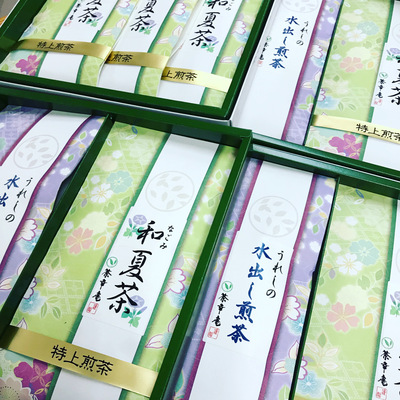 夏茶
夏茶
和夏茶
特上煎茶
特上煎茶
特上煎茶
うれしの
水出し煎茶
特上煎茶
茶幸庵
うれしの
水出し
なごみ
和夏茶
特上煎茶
茶幸庵
うれしの
水出し煎茶
茶幸庵
茶
茶幸庵